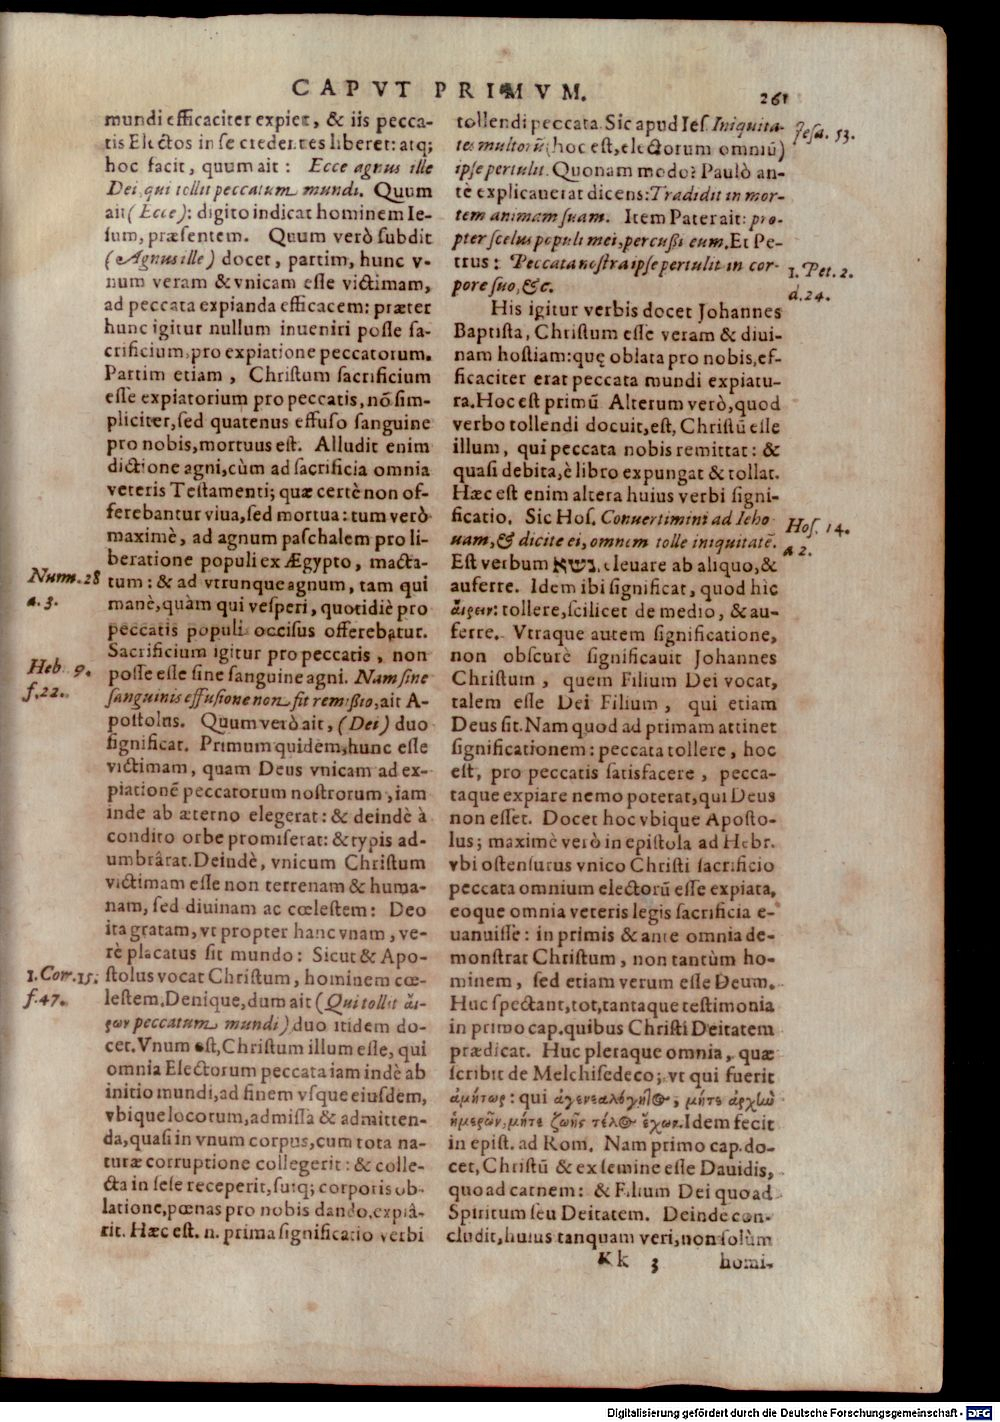 CAPVT PRIMVM.
261
mundi efficaciter expiet, & iis pecca-
tis Electos in se credentes liberet: atq;
hoc facit, quum ait: Ecce agnus ille
Dei, qui tollit peccatum mundi. Quum
ait (Ecce): digito indicat hominem Ie-
sum, præsentem. Quum verò subdit
(Agnus ille) docet, partim, hunc v-
num veram & vnicam esse victimam,
ad peccata expianda efficacem: præter
hunc igitur nullum inueniri posse sa-
crificium, pro expiatione peccatorum.
Partim etiam, Christum sacrificium
esse expiatorium pro peccatis, nō sim-
pliciter, sed quatenus effuso sanguine
pro nobis, mortuus est. Alludit enim
dictione agni, cùm ad sacrificia omnia
veteris Testamenti; quæ certè non of-
ferebantur viua, sed mortua: tum verò
maximè, ad agnum paschalem pro li-
beratione populi ex Ægypto, macta-
Num. 28
a. 3.
tum: & ad vtrunque agnum, tam qui
manè, quàm qui vesperi, quotidiè pro
peccatis populi occisus offerebatur.
Sacrificium igitur pro peccatis, non
Heb. 9.
f. 22.
posse esse sine sanguine agni. Nam sine
sanguinis effusione non fit remißio, ait A-
postolus. Quum verò ait, (Dei) duo
significat. Primum quidem, hunc esse
victimam, quam Deus vnicam ad ex-
piationē peccatorum nostrorum, iam
inde ab æterno elegerat: & deindè à
condito orbe promiserat: & typis ad-
umbrârat. Deindè, vnicum Christum
victimam esse non terrenam & huma-
nam, sed diuinam ac cœlestem: Deo
ita gratam, vt propter hanc vnam, ve-
rè placatus sit mundo: Sicut & Apo-
1. Cor. 15.
f. 47.
stolus vocat Christum, hominem cœ-
lestem. Denique, dum ait (Qui tollit ἄι-
ρων peccatum mundi) duo itidem do-
cet. Vnum est, Christum illum esse, qui
omnia Electorum peccata iam indè ab
initio mundi, ad finem vsque eiusdem,
vbique locorum, admissa & admitten-
da, quasi in vnum corpus, cum tota na-
turæ corruptione collegerit: & colle-
cta in sese receperit, suiq; corporis ob-
latione, pœnas pro nobis dando, expiâ-
rit. Hæc est. n. prima significatio verbi
tollendi peccata. Sic apud Ies. Iniquita-
Jesa. 53.
tes multorū (hoc est, electorum omniū)
ipse pertulit. Quonam modo? Paulò an-
tè explicauerat dicens: Tradidit in mor-
tem animam suam. Item Pater ait: pro-
pter scelus populi mei, percußi eum. Et Pe-
trus: Peccata nostra ipse pertulit in cor-
1. Pet. 2.
d. 24.
pore suo, &c.
His igitur verbis docet Johannes
Baptista, Christum esse veram & diui-
nam hostiam: quę oblata pro nobis, ef-
ficaciter erat peccata mundi expiatu-
ra. Hoc est primū Alterum verò, quod
verbo tollendi docuit, est, Christū esse
illum, qui peccata nobis remittat: &
quasi debita, è libro expungat & tollat.
Hæc est enim altera huius verbi signi-
ficatio. Sic Hos. Conuertimini ad Ieho
Hos. 14.
a 2.
uam, & dicite ei, omnem tolle iniquitatē.
Est verbum נשא, eleuare ab aliquo, &
auferre. Idem ibi significat, quod hîc
ἄιρειν: tollere, scilicet de medio, & au-
ferre. Vtraque autem significatione,
non obscurè significauit Johannes
Christum, quem Filium Dei vocat,
talem esse Dei Filium, qui etiam
Deus sit. Nam quod ad primam attinet
significationem: peccata tollere, hoc
est, pro peccatis satisfacere, pecca-
taque expiare nemo poterat, qui Deus
non esset. Docet hoc vbique Aposto-
lus; maximè verò in epistola ad Hebr.
vbi ostensurus vnico Christi sacrificio
peccata omnium electorū esse expiata,
eoque omnia veteris legis sacrificia e-
uanuisse: in primis & ante omnia de-
monstrat Christum, non tantùm ho-
minem, sed etiam verum esse Deum.
Huc spectant, tot, tantaque testimonia
in primo cap. quibus Christi Deitatem
prædicat. Huc pleraque omnia, quæ
scribit de Melchisedeco; vt qui fuerit
ἀμήτωρ: qui ἀγενεαλόγητος, μήτε ἀρχὼ
ἡμερῶν, μήτε ζωῆς τέλος ἔχων. Idem fecit
in epist. ad Rom. Nam primo cap. do-
cet, Christū & ex semine esse Dauidis,
quoad carnem: & Filium Dei quoad
Spiritum seu Deitatem. Deinde con-
cludit, huius tanquam veri, non solùm
Kk 3
homi-
Digitalisierung gefördert durch die Deutsche Forschungsgemeinschaft - DFG